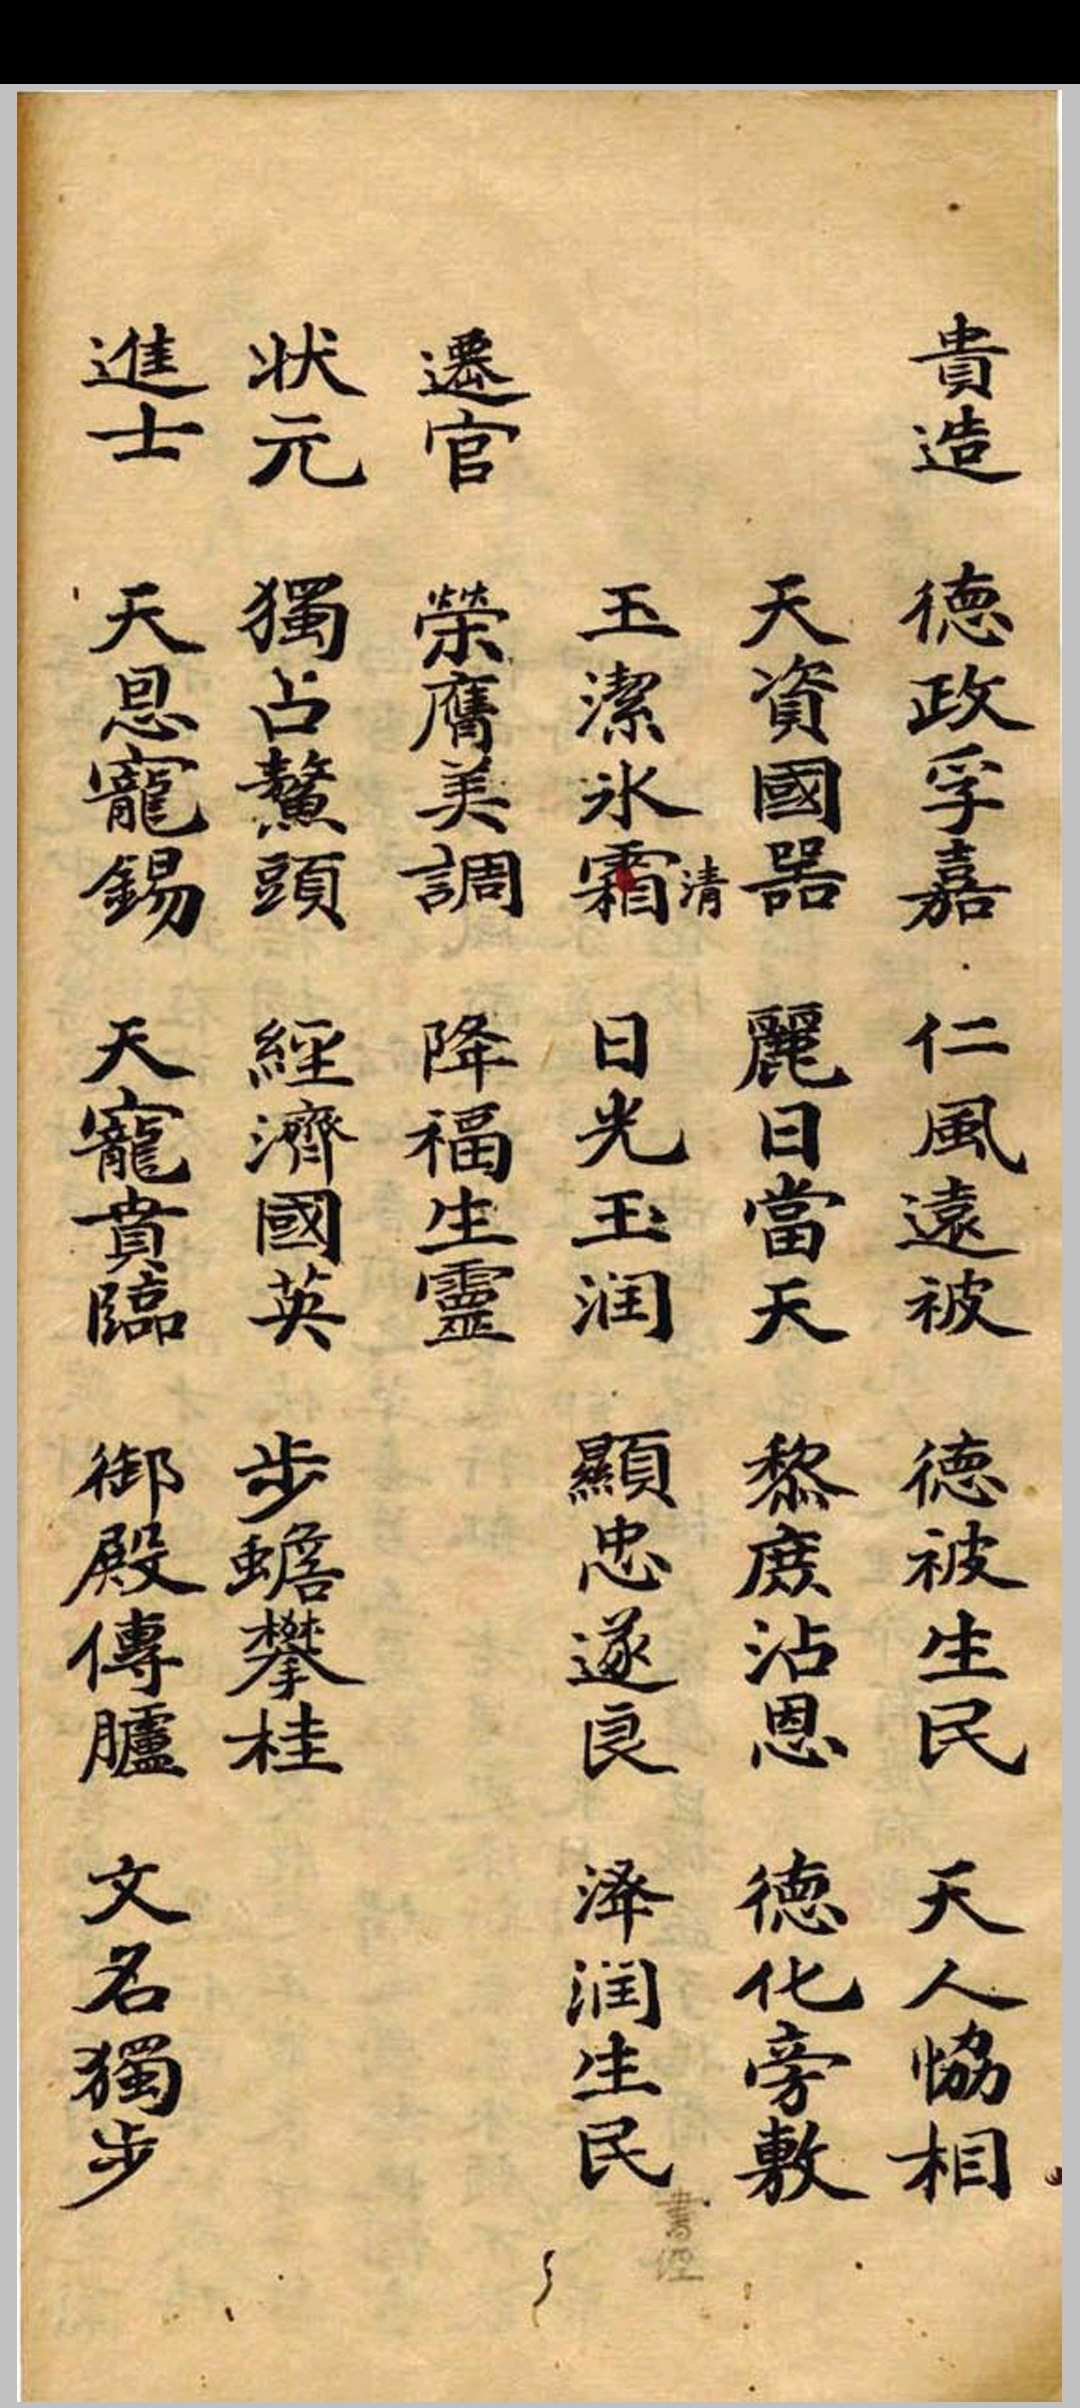 貴造 德政孚嘉 仁風遠被 德被生民 天人恊相
天資國器 麗日當天 黎庶沾恩 德化旁敷
玉潔氷霜 日光玉润 顯忠遂良 泽润生民
清
書經
遷官 榮膺美調 降福生靈
状元 獨占鰲頭 經濟國英 步蟾攀桂
進士 天恩寵錫 天寵賁臨 御殿傳臚 文名獨步